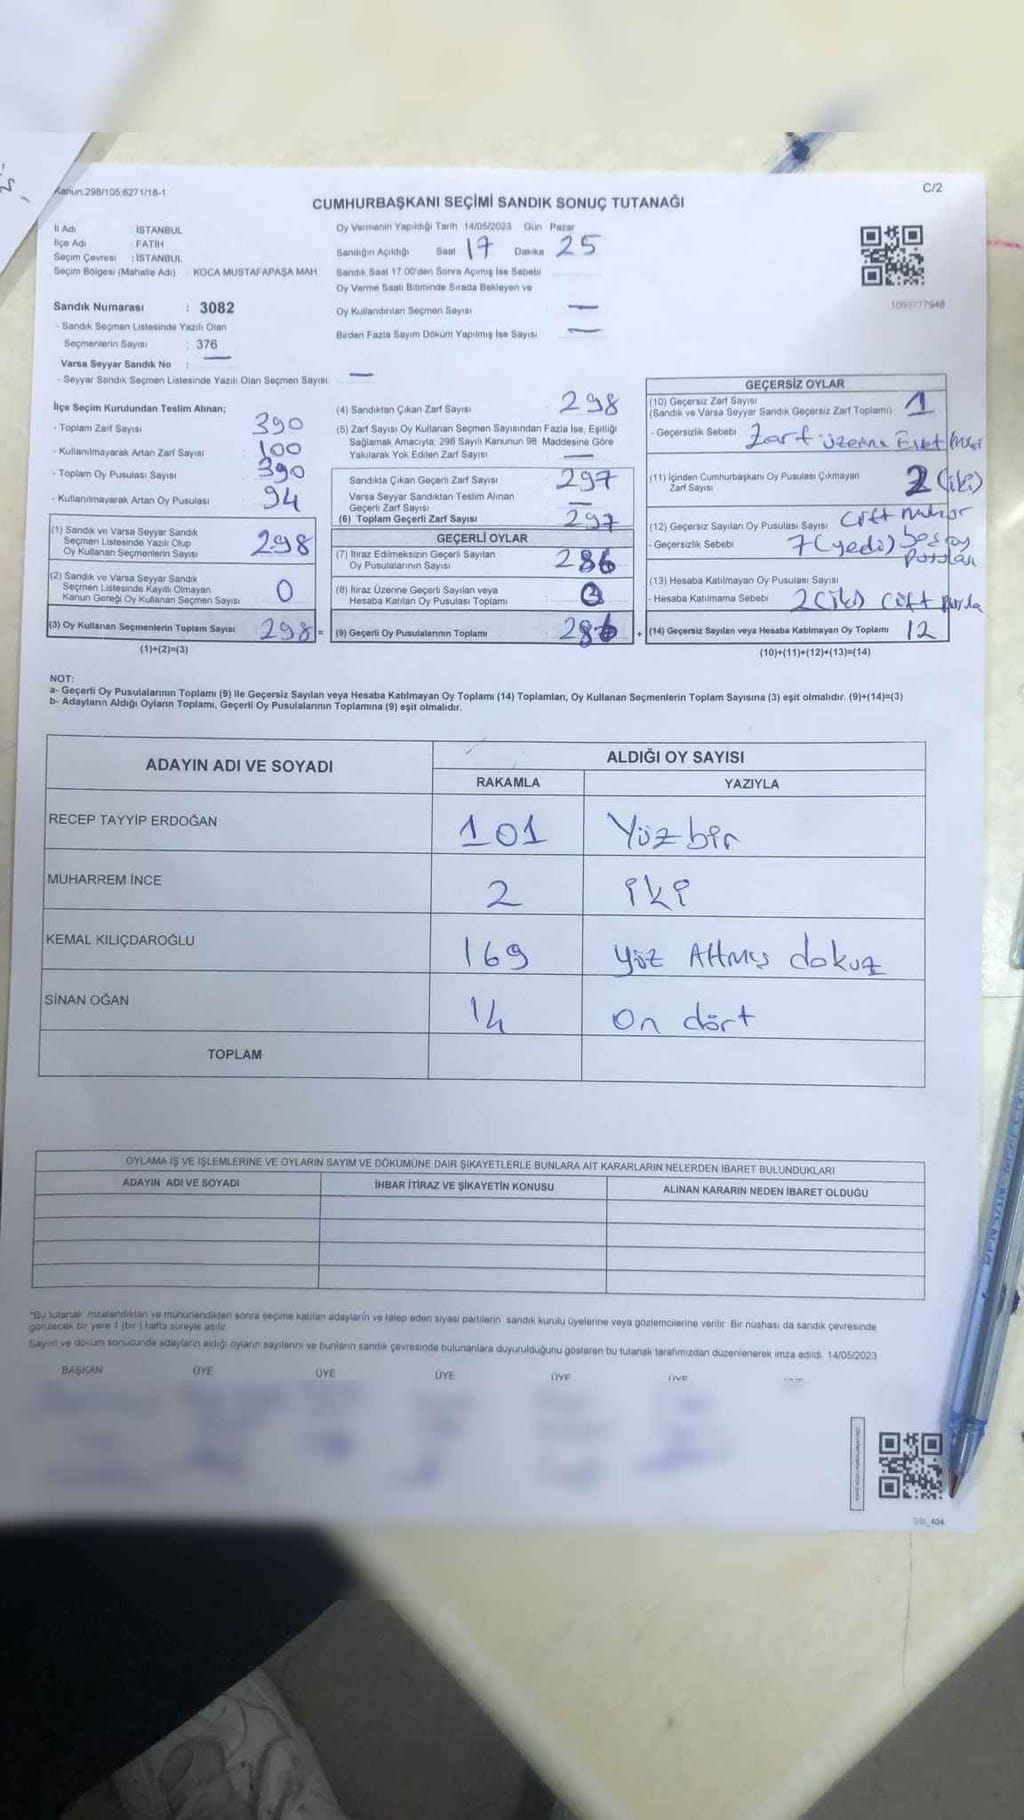 Kanun.298/105.6271/18-1
C/2
CUMHURBAŞKANI SEÇİMİ SANDIK SONUÇ TUTANAĞI
İl Adı İSTANBUL
İlçe Adı FATİH
Seçim Çevresi : İSTANBUL
Seçim Bölgesi (Mahalle Adı) KOCA MUSTAFAPAŞA MAH
Sandık Numarası : 3082
- Sandık Seçmen Listesinde Yazılı Olan
Seçmenlerin Sayısı : 376
Varsa Seyyar Sandık No : —
- Seyyar Sandık Seçmen Listesinde Yazılı Olan Seçmen Sayısı: —
Oy Vermenin Yapıldığı Tarih 14/05/2023 Gün Pazar
Sandığın Açıldığı Saat 17 Dakika 25
Sandık Saat 17.00'den Sonra Açımış İse Sebebi
Oy Verme Saati Bitiminde Sırada Bekleyen ve
Oy Kullandırılan Seçmen Sayısı —
Birden Fazla Sayım Döküm Yapılmış İse Sayısı —
1093777948
İlçe Seçim Kurulundan Teslim Alınan;
- Toplam Zarf Sayısı 390
- Kullanılmayarak Artan Zarf Sayısı 100
- Toplam Oy Pusulası Sayısı 390
- Kullanılmayarak Artan Oy Pusulası 94
(1) Sandık ve Varsa Seyyar Sandık
Seçmen Listesinde Yazılı Olup
Oy Kullanan Seçmenlerin Sayısı 298
(2) Sandık ve Varsa Seyyar Sandık
Seçmen Listesinde Kayıtlı Olmayan
Kanun Gereği Oy Kullanan Seçmen Sayısı 0
(3) Oy Kullanan Seçmenlerin Toplam Sayısı 298 =
(1)+(2)=(3)
(4) Sandıktan Çıkan Zarf Sayısı : 298
(5) Zarf Sayısı Oy Kullanan Seçmen Sayısından Fazla İse, Eşitliği
Sağlamak Amacıyla; 298 Sayılı Kanunun 98. Maddesine Göre
Yakılarak Yok Edilen Zarf Sayısı : —
Sandıkta Çıkan Geçerli Zarf Sayısı : 297
Varsa Seyyar Sandıktan Teslim Alınan
Geçerli Zarf Sayısı : —
(6) Toplam Geçerli Zarf Sayısı : 297
GEÇERLİ OYLAR
(7) İtiraz Edilmeksizin Geçerli Sayılan
Oy Pusulalarının Sayısı : 286
(8) İtiraz Üzerine Geçerli Sayılan veya
Hesaba Katılan Oy Pusulası Toplamı :
(9) Geçerli Oy Pusulalarının Toplamı : 286 +
GEÇERSİZ OYLAR
(10) Geçersiz Zarf Sayısı
(Sandık ve Varsa Seyyar Sandık Geçersiz Zarf Toplamı) 1
- Geçersizlik Sebebi Zarf üzerine Evet
(11) İçinden Cumhurbaşkanı Oy Pusulası Çıkmayan
Zarf Sayısı 2 (iki)
(12) Geçersiz Sayılan Oy Pusulası Sayısı Çift mühür
- Geçersizlik Sebebi 7 (yedi) boş oy
pusulası
(13) Hesaba Katılmayan Oy Pusulası Sayısı
- Hesaba Katılmama Sebebi 2 (iki) Çift
(14) Geçersiz Sayılan veya Hesaba Katılmayan Oy Toplamı 12
(10)+(11)+(12)+(13)=(14)
NOT:
a- Geçerli Oy Pusulalarının Toplamı (9) İle Geçersiz Sayılan veya Hesaba Katılmayan Oy Toplamı (14) Toplamları, Oy Kullanan Seçmenlerin Toplam Sayısına (3) eşit olmalıdır. (9)+(14)=(3)
b- Adayların Aldığı Oyların Toplamı, Geçerli Oy Pusulalarının Toplamına (9) eşit olmalıdır.
ADAYIN ADI VE SOYADI ALDIĞI OY SAYISI
RAKAMLA YAZIYLA
RECEP TAYYİP ERDOĞAN 101 Yüzbir
MUHARREM İNCE 2 iki
KEMAL KILIÇDAROĞLU 169 yüz Altmış dokuz
SİNAN OĞAN 14 On dört
TOPLAM
OYLAMA İŞ VE İŞLEMLERİNE VE OYLARIN SAYIM VE DÖKÜMÜNE DAİR ŞİKAYETLERLE BUNLARA AİT KARARLARIN NELERDEN İBARET BULUNDUKLARI
ADAYIN ADI VE SOYADI İHBAR İTİRAZ VE ŞİKAYETİN KONUSU ALINAN KARARIN NEDEN İBARET OLDUĞU
*Bu tutanak imzalandıktan ve mühürlendikten sonra seçime katılan adayların ve talep eden siyasi partilerin sandık kurulu üyelerine veya gözlemcilerine verilir. Bir nüshası da sandık çevresinde
görülecek bir yere 1 (bir) hafta süreyle asılır.
Sayım ve döküm sonucunda adayların aldığı oyların sayılarını ve bunların sandık çevresinde bulunanlara duyurulduğunu gösteren bu tutanak tarafımızdan düzenlenerek imza edildi. 14/05/2023
BAŞKAN ÜYE ÜYE ÜYE ÜYE ÜYE
SSI_404